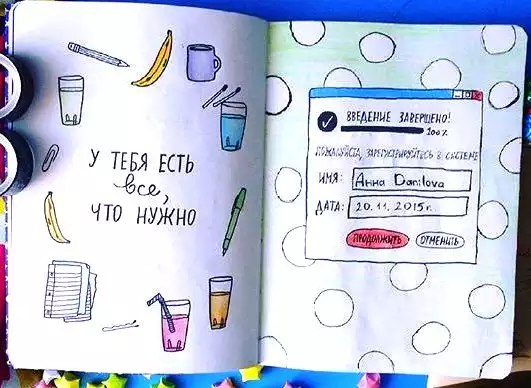 У ТЕБЯ ЕСТЬ
все,
ЧТО НУЖНО
ВВЕДЕНИЕ ЗАВЕРШЕНО!
100%
ПОЖАЛУЙСТА, ЗАРЕГИСТРИРУЙТЕСЬ В СИСТЕМЕ
ИМЯ: Anna Danilova
ДАТА: 20.11.2015г.
ПРОДОЛЖИТЬ ОТМЕНИТЬ